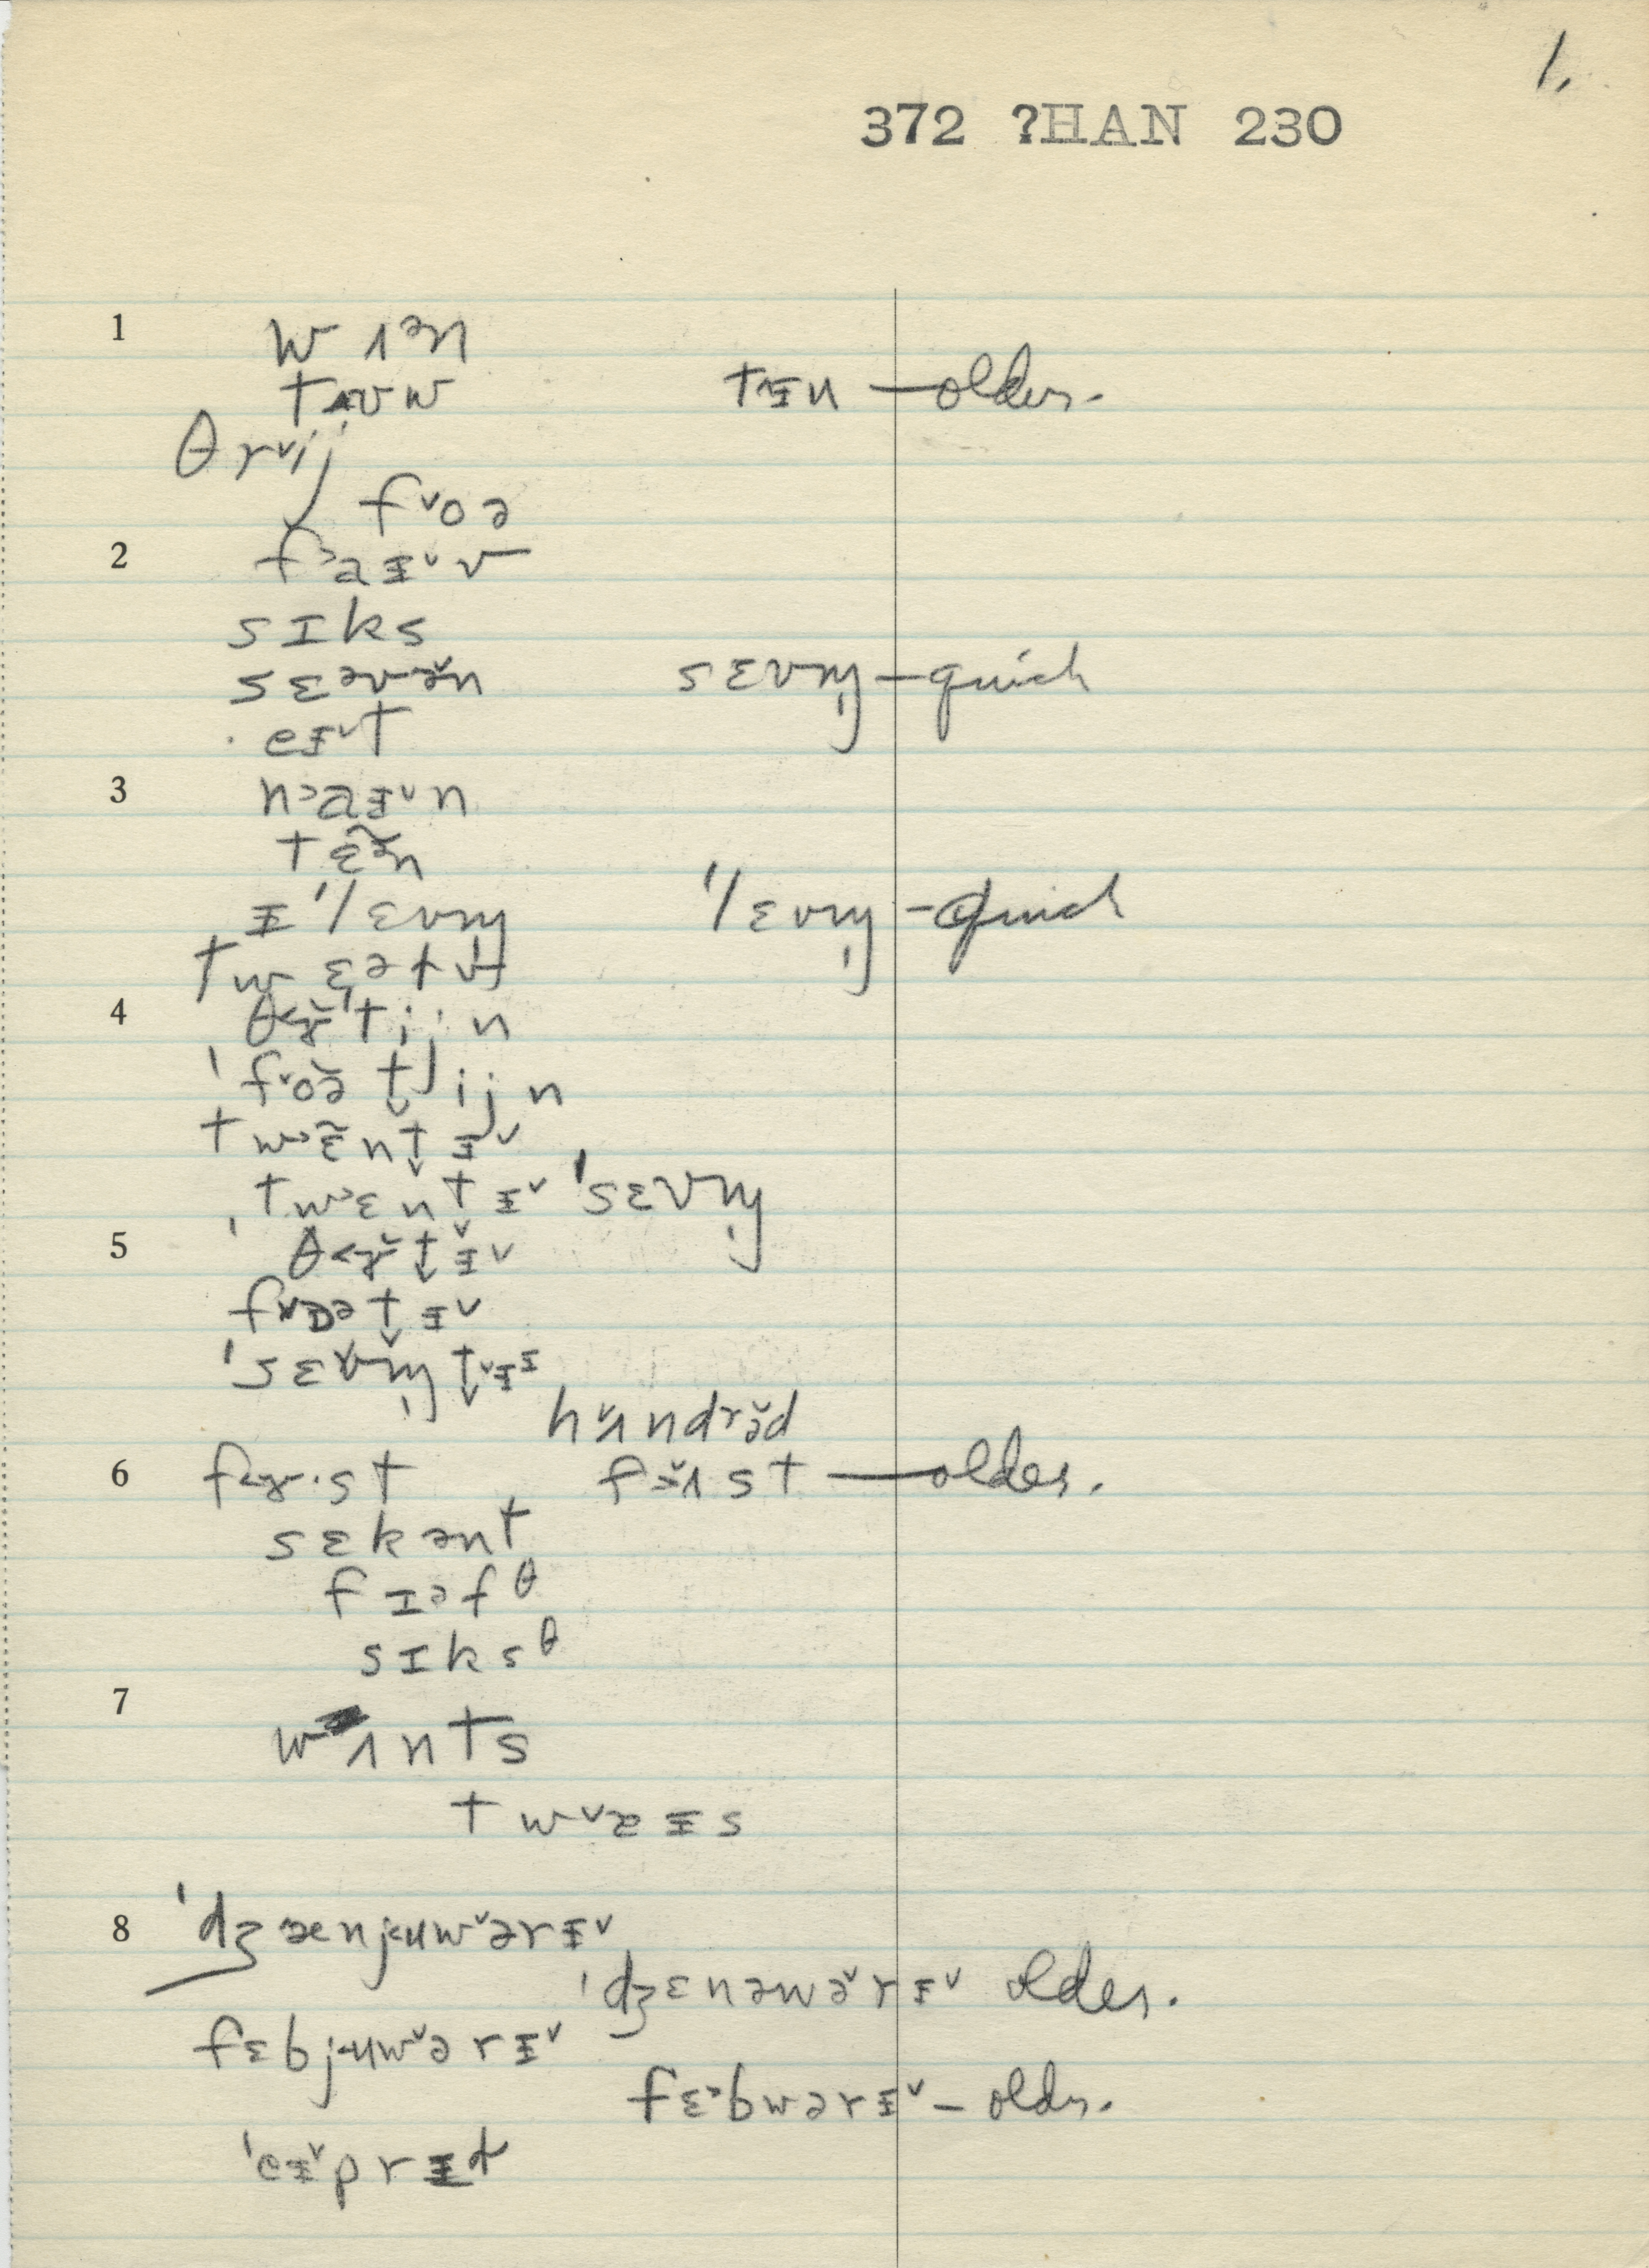 1.
372 ?HAN 230
1 w ʌᵊn
tʉw tɪ̵n — older.
θrᵛij
fᵛoə
2 f˃aɪ̵ᵛv
sɪks
sɛᵊvə̆n sɛvm̩ — quick
eɪ̵ᵛt
3 n˃aɪ̵ᵛn
tɛ̃ə̃n
ɪ̵ˈlɛvm̩ ˈlɛvm̩ — quick
twɛət
4 θ˂ɚˈtijn
ˈfᵛoə̆t̬ijn
tw˃ɛ̃nt̬ɪ̵ᵛ
ˌtw˃ɛnt̬ɪ̵ᵛ ˈsɛvm̩
5 ˈθ˂ɚt̬ɪ̵ᵛ
fᵛɒət̬ɪ̵ᵛ
ˈsɛvm̩t̬ᵛɪ̵ɪ̵
hᵛʌndrə̆d
6 f˂ɚ·st fɜ̆ʌst — older.
sɛkənt
fɪəfθ
sɪksθ
7 wʌnts
twᵛæɪ̵s
8 ˈdʒænjuwᵛərɪ̵ᵛ
ˈdʒɛnəwə̆rɪ̵ᵛ older.
fɛbjuwᵛərɪ̵ᵛ
fɛ˃bwərɪ̵ᵛ — older.
ˈeɪ̵ᵛprɪ̵ɫ